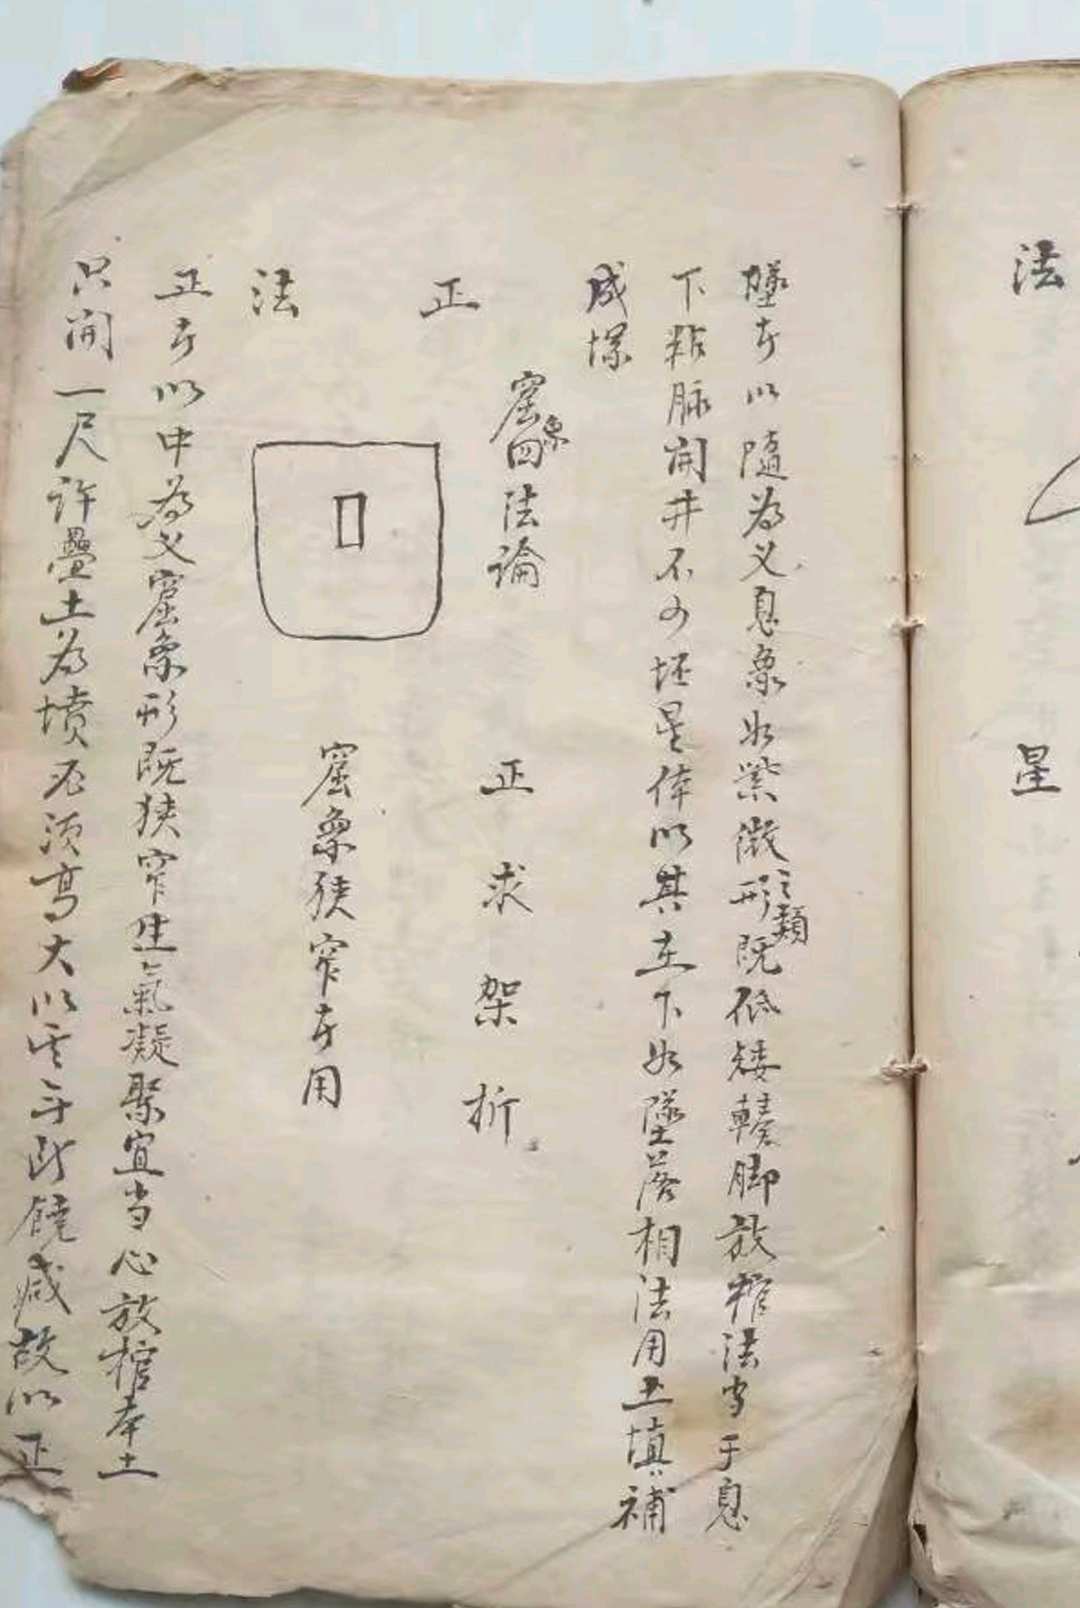 法
星
墜者以隨為义息象如紫微形之類既低矮輳脚放棺法當于息
下粘脉開井不可坯星体以其在下如墜落相法用土填補
成墚
窟象四法論
正求架折
正
法
窟象狭窄者用
正者以中為义窟象形既狭窄生氣凝聚宜当心放棺奉土
只開一尺許疊土為墳不须高大以其无所饒减故以正